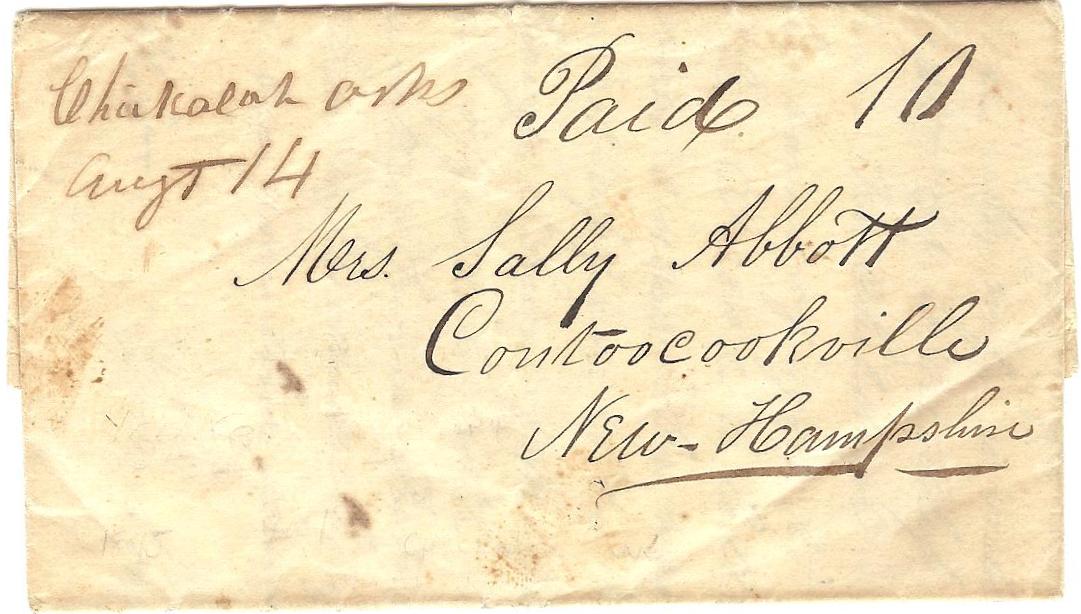 Chickalah Arks
Augt 14
Paid 10
Mrs. Sally Abbott
Contoocookville
New-Hampshire